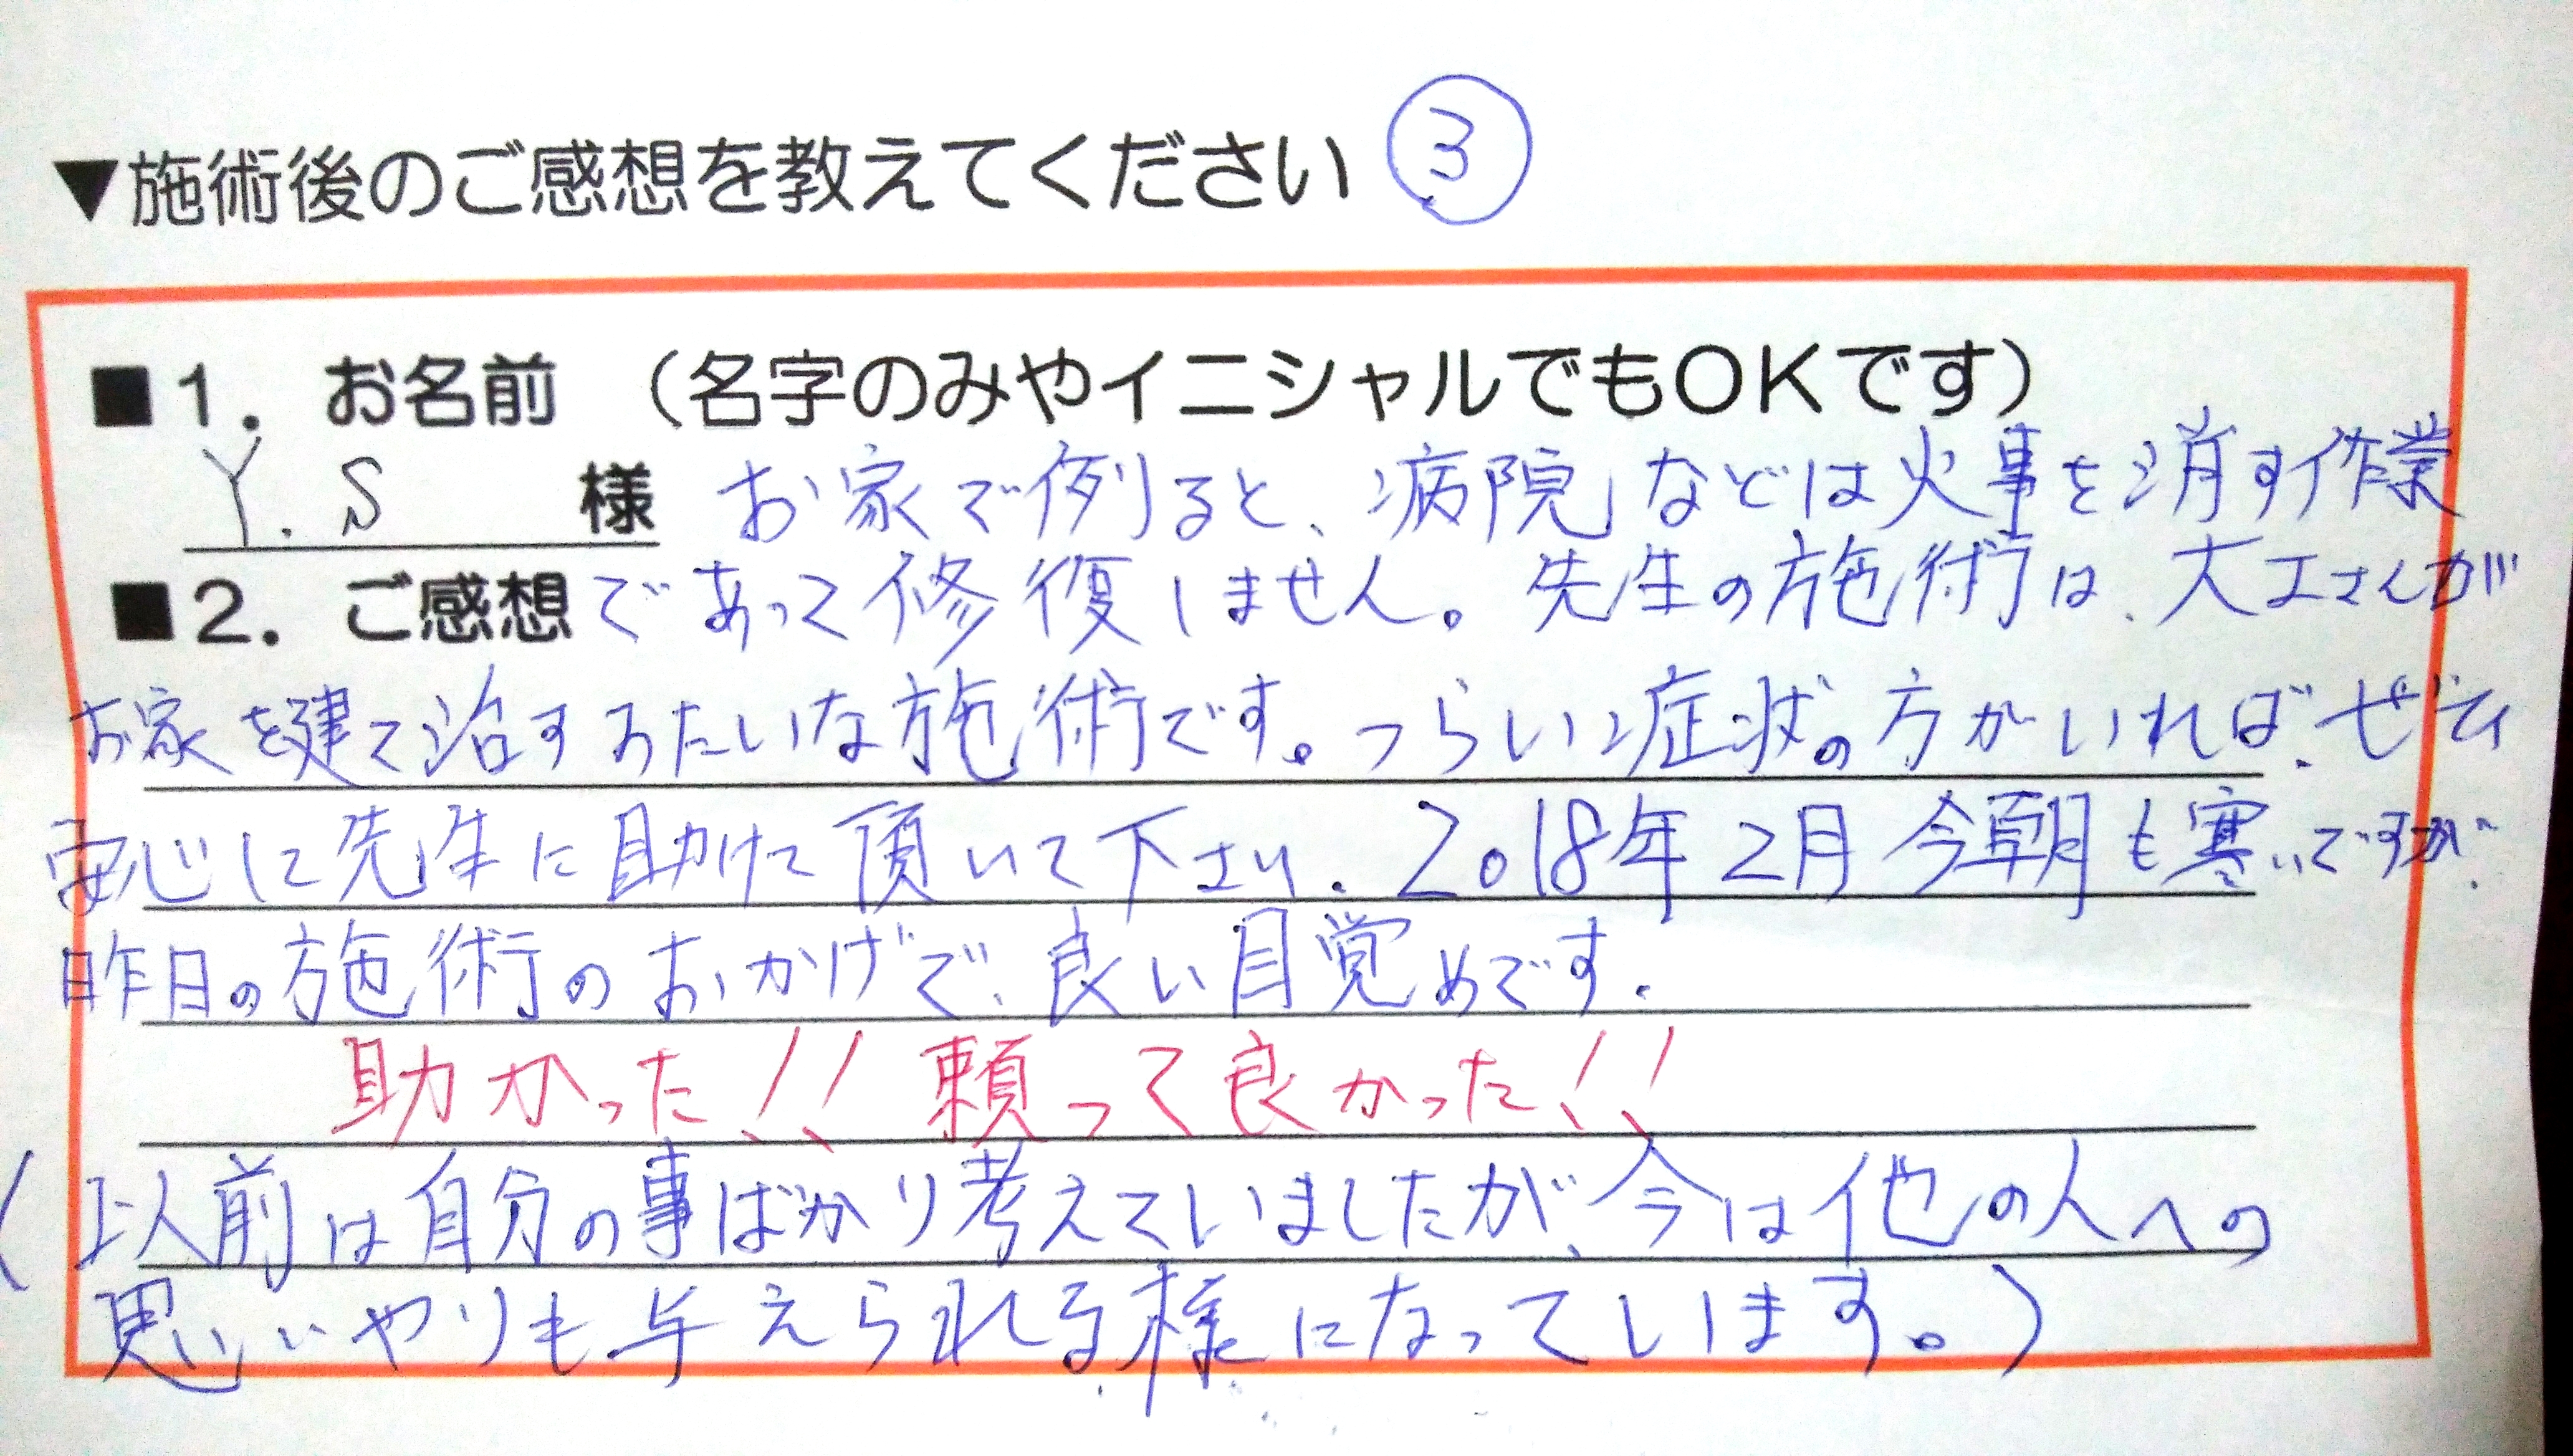 ▼施術後のご感想を教えてください ③
■1. お名前 (名字のみやイニシャルでもOKです)
Y.S 様 お家で例ると、病院などは火事を消す作業
■2. ご感想 であって修復しません。先生の施術は、大工さんが
お家を建て治すみたいな施術です。つらい症状の方がいれば、ぜひ
安心して先生に助けて頂いて下さい。2018年2月 今朝も寒いですが、
昨日の施術のおかげで、良い目覚めです。
助かった!! 頼って良かった!!
(以前は自分の事ばかり考えていましたが、今は他の人への
思いやりも与えられる様になっています。)